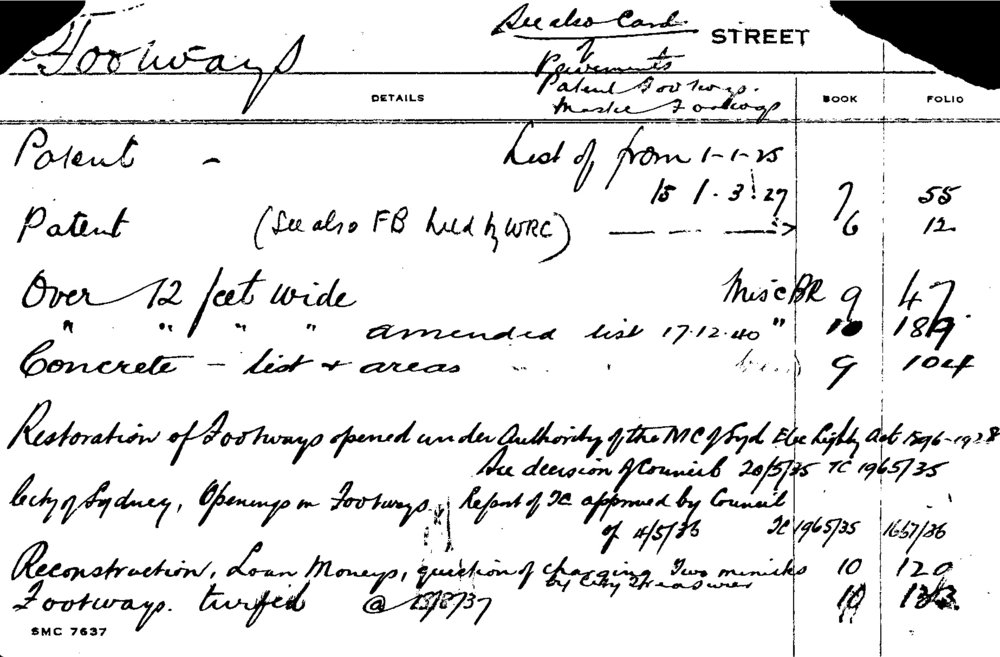 Footways
See also Card
of
Pavements
STREET
Patent Footways.
Mastic Footways
DETAILS BOOK FOLIO
Patent – List of from 1-1-25
to 1.3.27 7 55
Patent (See also FB held by WRC) — — — —> 6 12
Over 12 feet wide Misc BR 9 47
" " " " amended list 17.12.40 " 10 189
Concrete – list + areas 9 104
Restoration of Footways opened under Authority of the MC of Syd Elec Lightg Act 1896-1928
See decision of Council 20/5/35 TC 1965/35
City of Sydney, Openings in Footways. Report of TC approved by Council
of 4/5/36 TC 1965/35 1657/36
Reconstruction, Loan Moneys, question of charging Two minicks 10 120
by City Treasurer
Footways. turfed @ 23/8/37 10 133.
SMC 7637